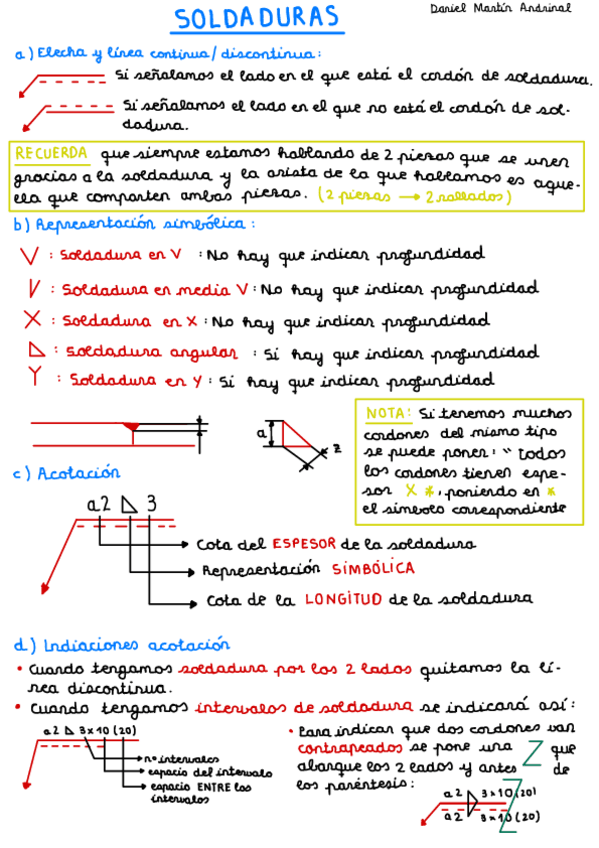 SOLDADURAS
Daniel Martín Andrinal
a) Flecha y línea continua/discontinua:
Si señalamos el lado en el que está el cordón de soldadura.
Si señalamos el lado en el que no está el cordón de sol-
dadura.
RECUERDA que siempre estamos hablando de 2 piezas que se unen
gracias a la soldadura y la arista de la que hablamos es aque-
lla que comparten ambas piezas. (2 piezas → 2 rallados)
b) Representación simbólica:
V : Soldadura en V : No hay que indicar profundidad
: Soldadura en media V : No hay que indicar profundidad
X : Soldadura en X : No hay que indicar profundidad
: Soldadura angular : Sí hay que indicar profundidad
Y : Soldadura en Y : Sí hay que indicar profundidad
a
z
NOTA: Si tenemos muchos
cordones del mismo tipo
se puede poner: "Todos
los cordones tienen espe-
sor X *, poniendo en *
el símbolo correspondiente
c) Acotación
a2 ◺ 3
Cota del ESPESOR de la soldadura
Representación SIMBÓLICA
Cota de la LONGITUD de la soldadura
d) Indiaciones acotación
• Cuando tengamos soldadura por los 2 lados quitamos la lí-
nea discontinua.
• Cuando tengamos intervalos de soldadura se indicará así:
a2 ◺ 3x10 (20)
nº intervalos
espacio del intervalo
espacio ENTRE los
intervalos
• Para indicar que dos cordones van
contrapeados se pone una Z que
abarque los 2 lados y antes de
los paréntesis:
a2 3x10 (20)
a2 3x10 (20)